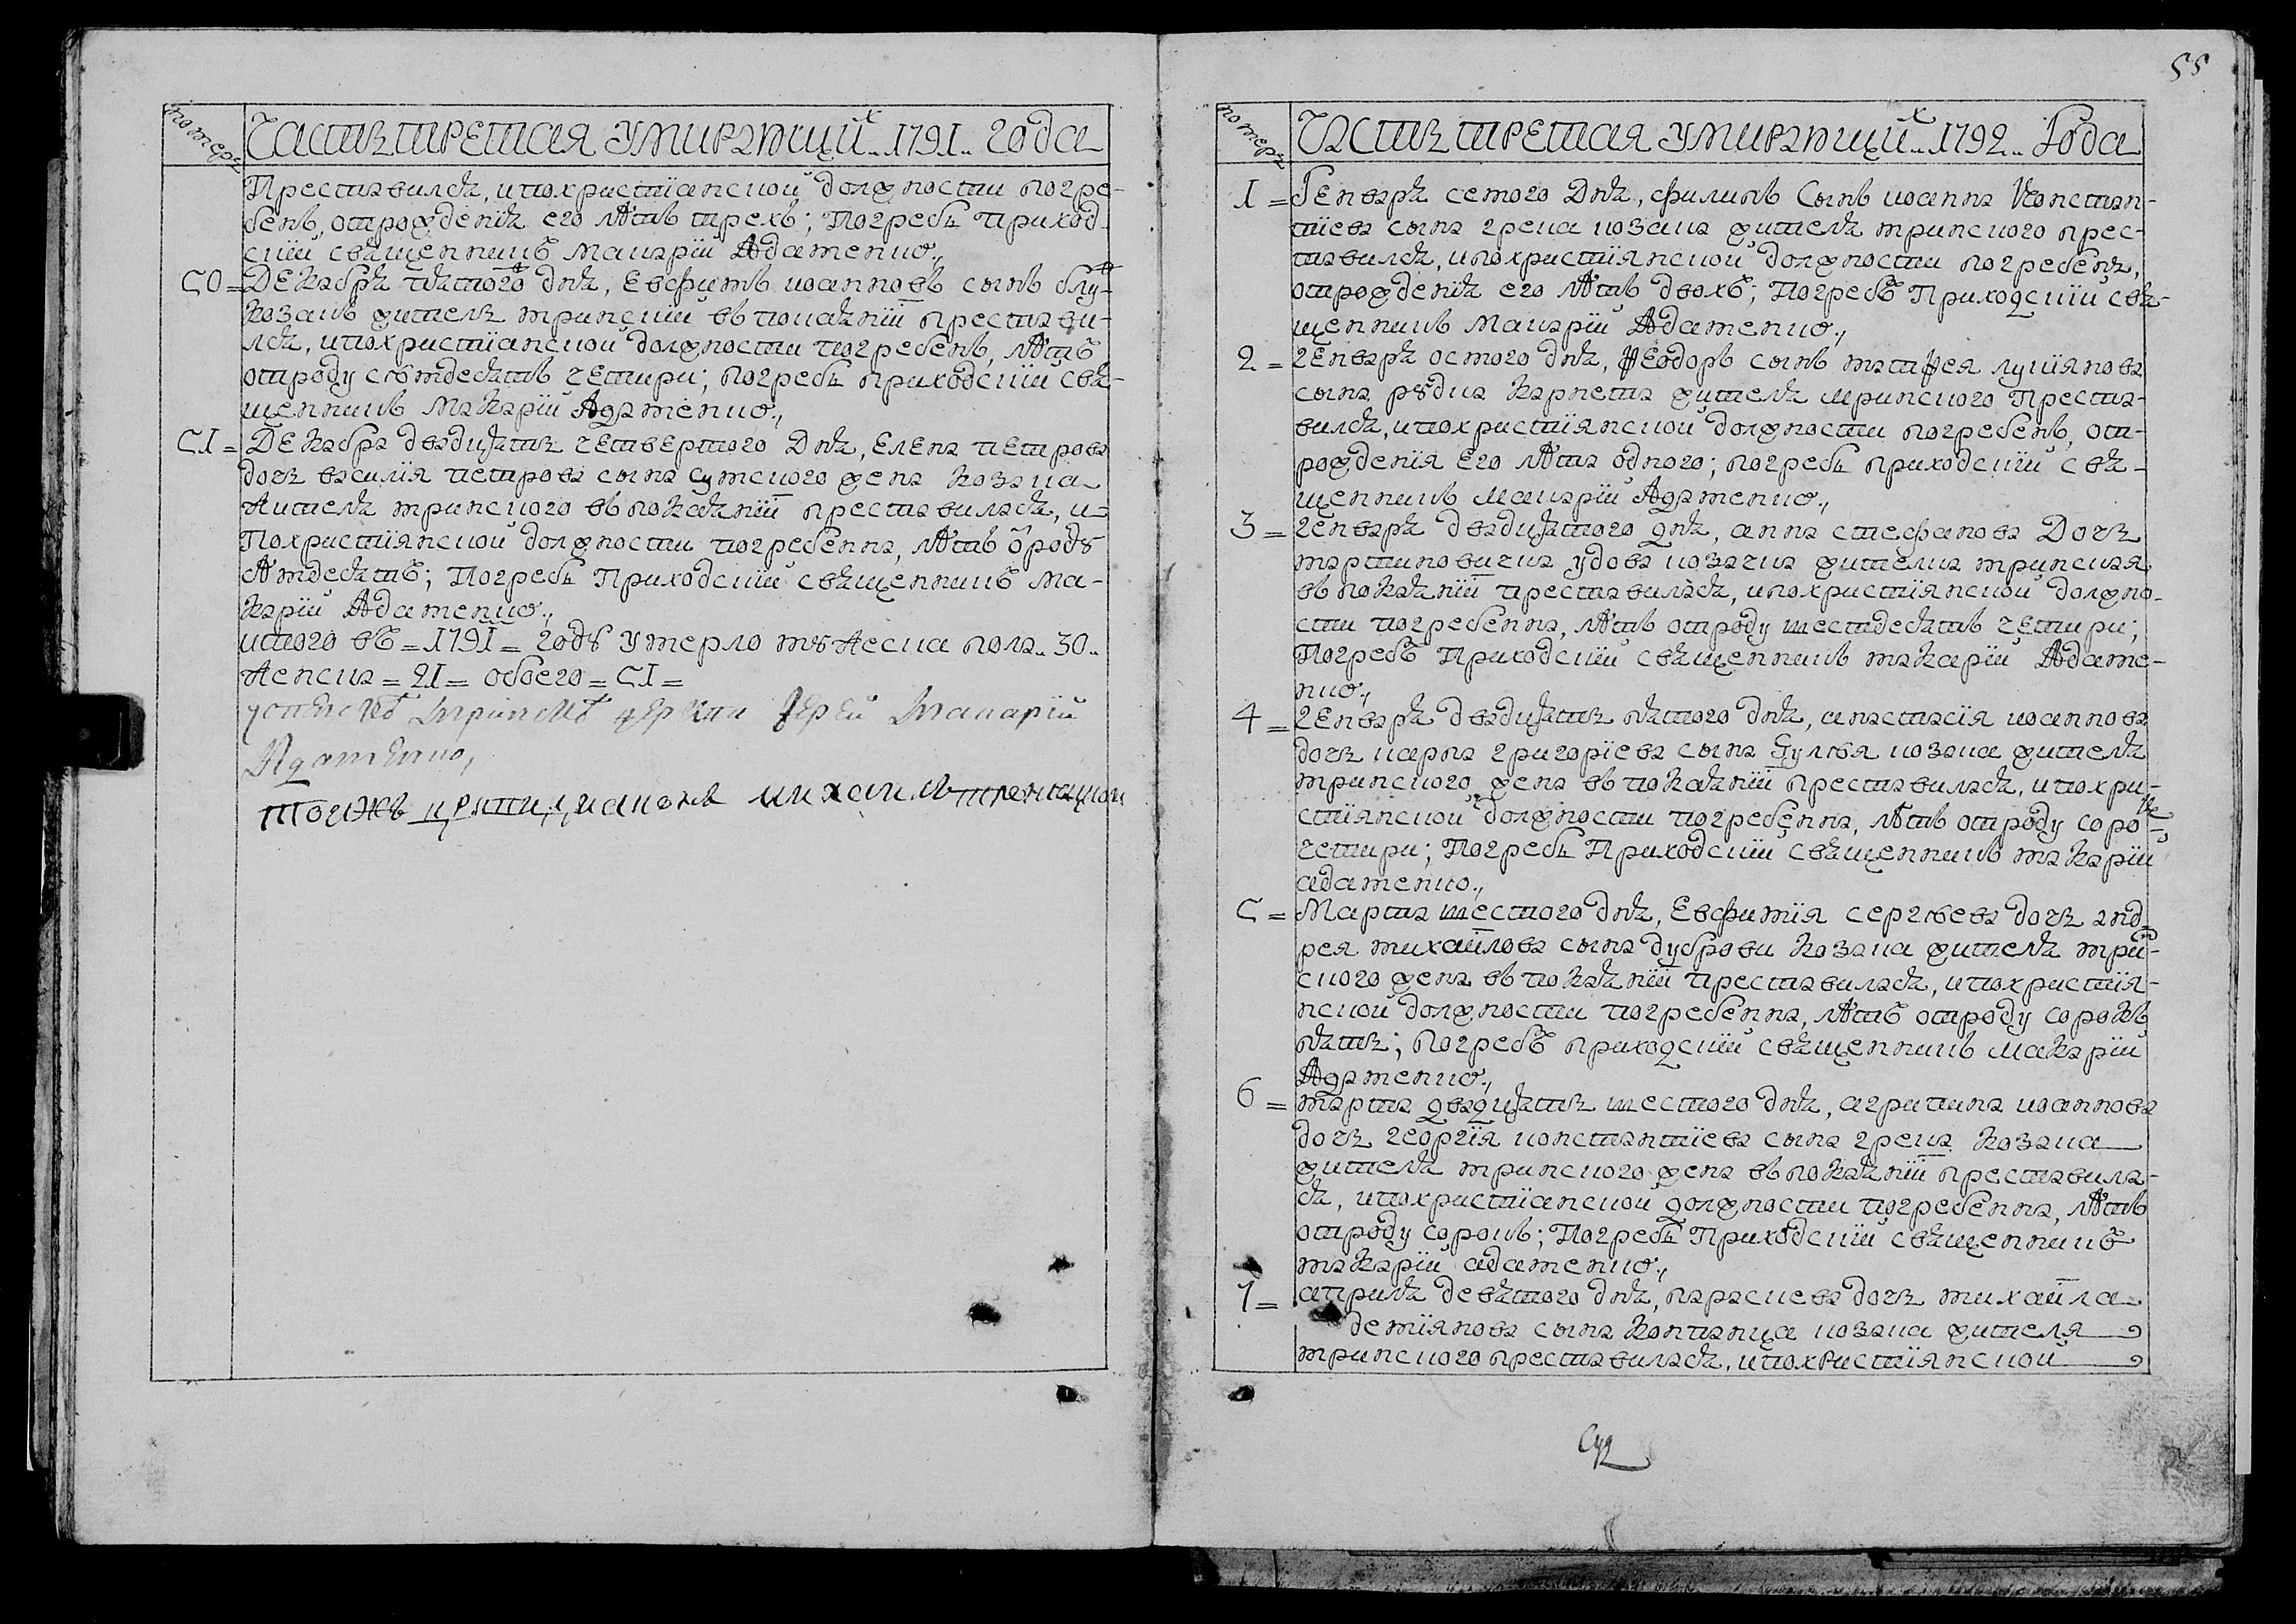 номеръ
Часть третая умирающихъ 1791 года
Преставился, и по християнской должности погре-
бенъ, отрождения его лѣтъ трехъ; Погребъ приход-
скій священникъ Макарій Адаменко.,
50 = Декабря пятого дня, Евфимъ иоанновъ сынъ
козакъ житель мринскій въ покаянїи престави-
лся, и по християнской должности погребенъ, лѣтъ
отроду семдесятъ четири; погребъ приходскій свя-
щенникъ Макарій Адаменко.,
51 = Декабра двадцять четвертого дня, Елена петрова
дочь василія петрова сына жена козака
жителя мринского въ покаянїи преставилася, и
По християнской должности погребенна, лѣтъ ѿ родꙋ
десятъ; Погребъ Приходскій священникъ Ма-
карій Адаменко.,
итого въ = 1791 = годꙋ умерло мꙋжеска пола.. 30..
женска = 21 = обоего = 51 =
успенской мринской церкви Іерей Макарій
Адаменко,
тоижъ церкви михаилъ
55
номеръ
Часть третая умирающихъ 1792 года
1 = Генваря семого дня, филипъ Сынъ иоанна Констан-
тіева сына грека козака жителя мринского прес-
тавился, и по християнской должности погребенъ,
отрождения его лѣтъ двохъ; Погребъ Приходскій свя-
щенникъ Макарій Адаменко.,
2 = Генваря осмого дня, Ѳеодоръ сынъ матѳея лукіянова
сына рꙋдка карнета жителя мринского Преста-
вился, и по християнской должности погребенъ, от-
рожденія его лѣта одного; погребъ приходскій свя-
щенникъ Макарій Адаменко.,
3 = Генваря двадцятого дня, анна стефанова Дочь
мартиновичка удова козачка жителка мринская
въ покаянїи преставилася, и по християнской должно-
сти погребенна, лѣтъ отроду шестдесятъ четири;
Погребъ Приходскій священникъ макарій Адаме-
нко.,
4 = Генваря двадцять пятого дня, анастасія иоаннова
дочь карпа григорієва сына козака жителя
мринского жена въ покаянїи преставилася, и по хри-
стіянской должности погребенна, лѣтъ отроду сорокъ
четири; Погребъ Приходскій священникъ макарій
адаменко.,
5 = Марта шестого дня, Евфимія сергѣева дочь анд-
рея михайлова сына дуброви козака жителя мрин-
ского жена въ покаянїи преставилася, и по християн-
нской должности погребенна, лѣтъ отроду сорокъ
пять; погребъ приходскій священникъ Макарій
Адаменко.,
6 = марта двадцять шестого дня, агрипина иоаннова
дочь георгія константіева сына грека козака
жителя мринского жена въ покаянїи преставила-
ся, и по християнской должности погребенна, лѣтъ
отроду сорокъ; Погребъ Приходскій священникъ
макарій адаменко.,
7 = априля девятого дня, параскева дочь михайла
деміянова сына козака жителя
мринского преставилася, и по християнской